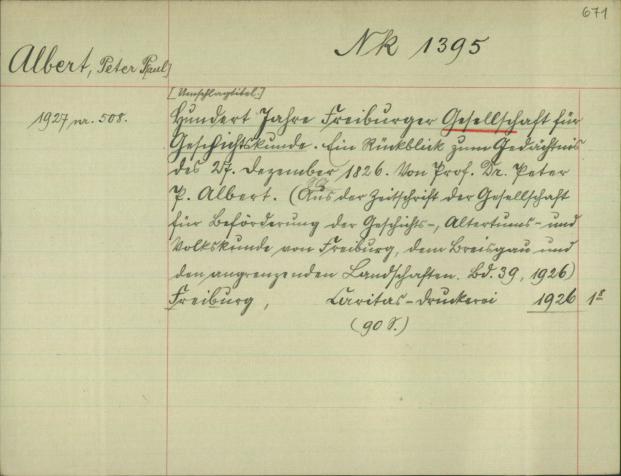 671
Nk 1395
Albert, Peter P[aul]
[Umschlagtitel.]
1927 nr. 508.
Hundert Jahre Freiburger Gesellschaft für
Geschichtskunde. Ein Rückblick zum Gedächtnis
des 27. Dezember 1826. Von Prof. Dr. Peter
P. Albert. (Aus der Zeitschrift der Gesellschaft
für Beförderung der Geschichts-, Altertums- und
Volkskunde von Freiburg, dem Breisgau und
den angrenzenden Landschaften. Bd. 39, 1926)
Freiburg, Caritas-Druckerei 1926 8
(90 S.)